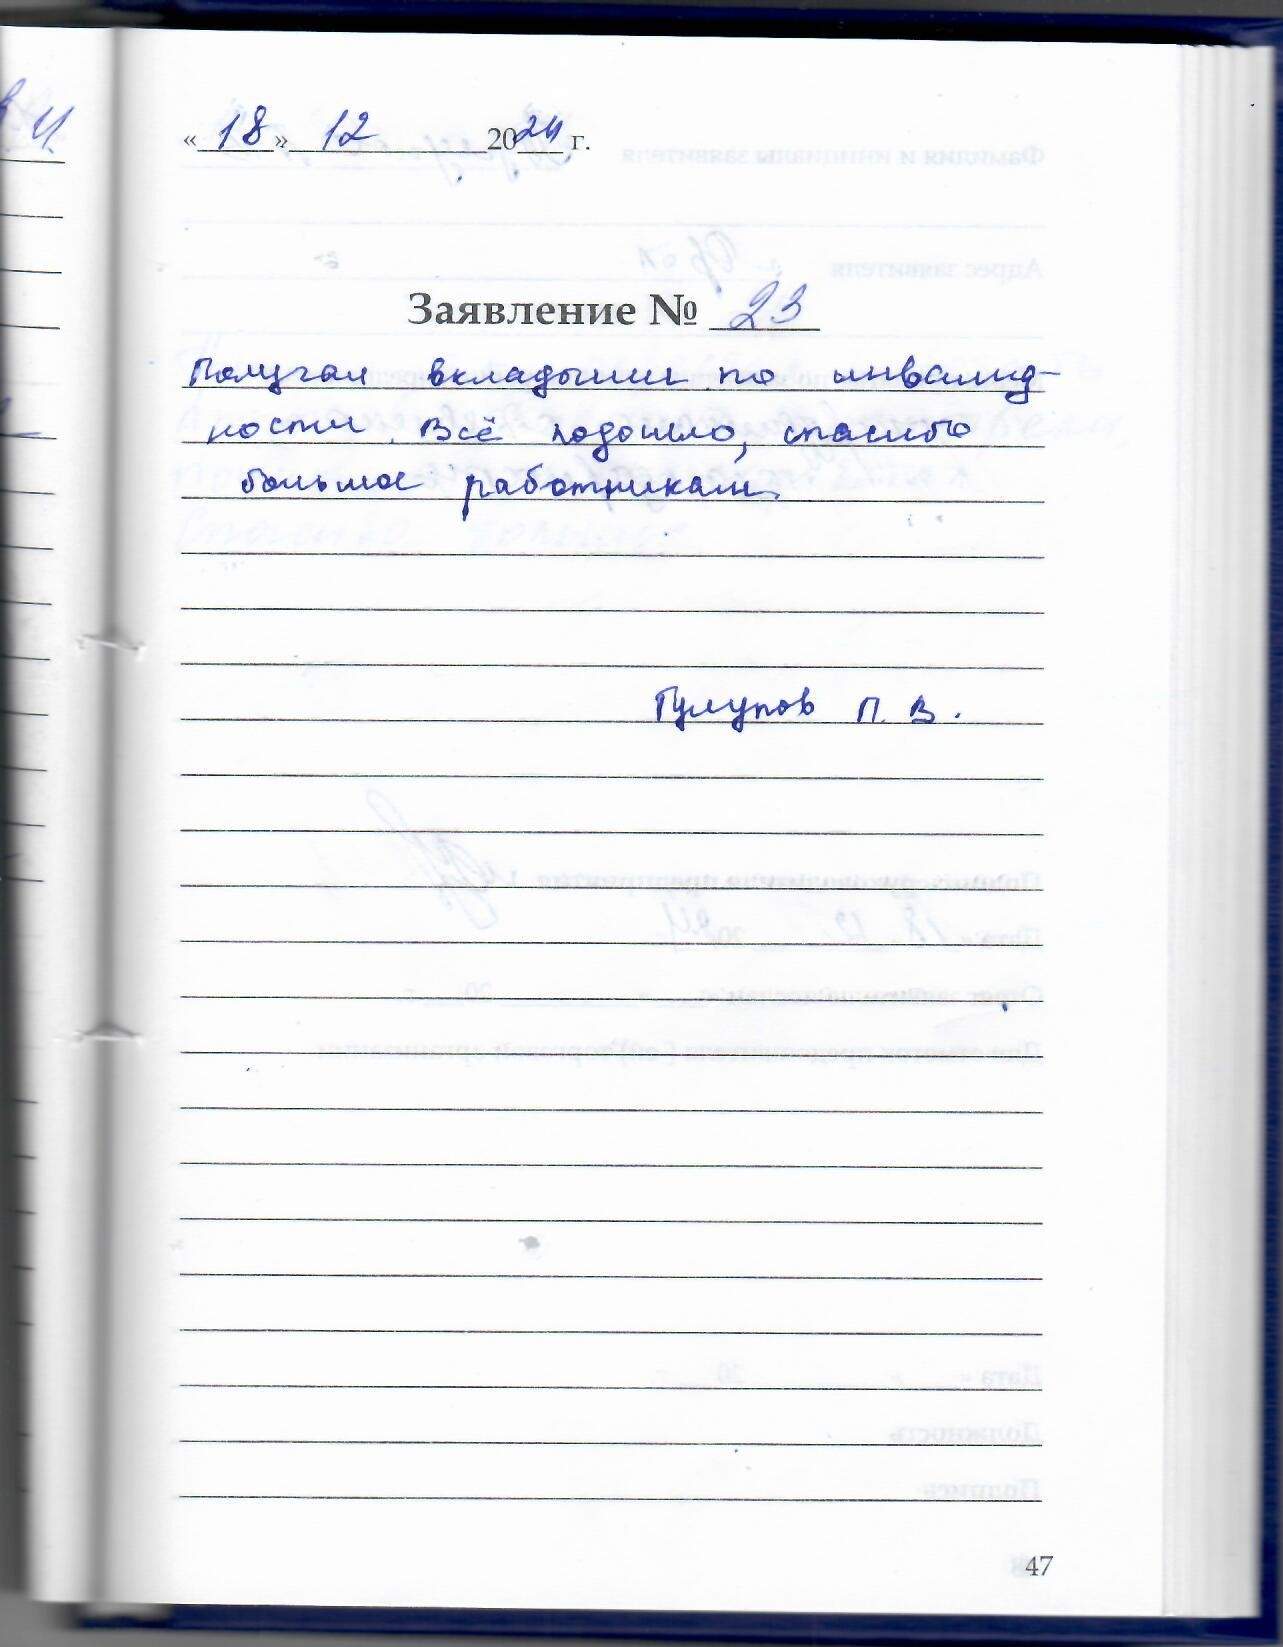 «18» 12 2024 г.
Заявление № 23
Получал вкладыши по инвалид-
ности. Всё подошло, спасибо
большое работникам.
Тулупов П. В.
47